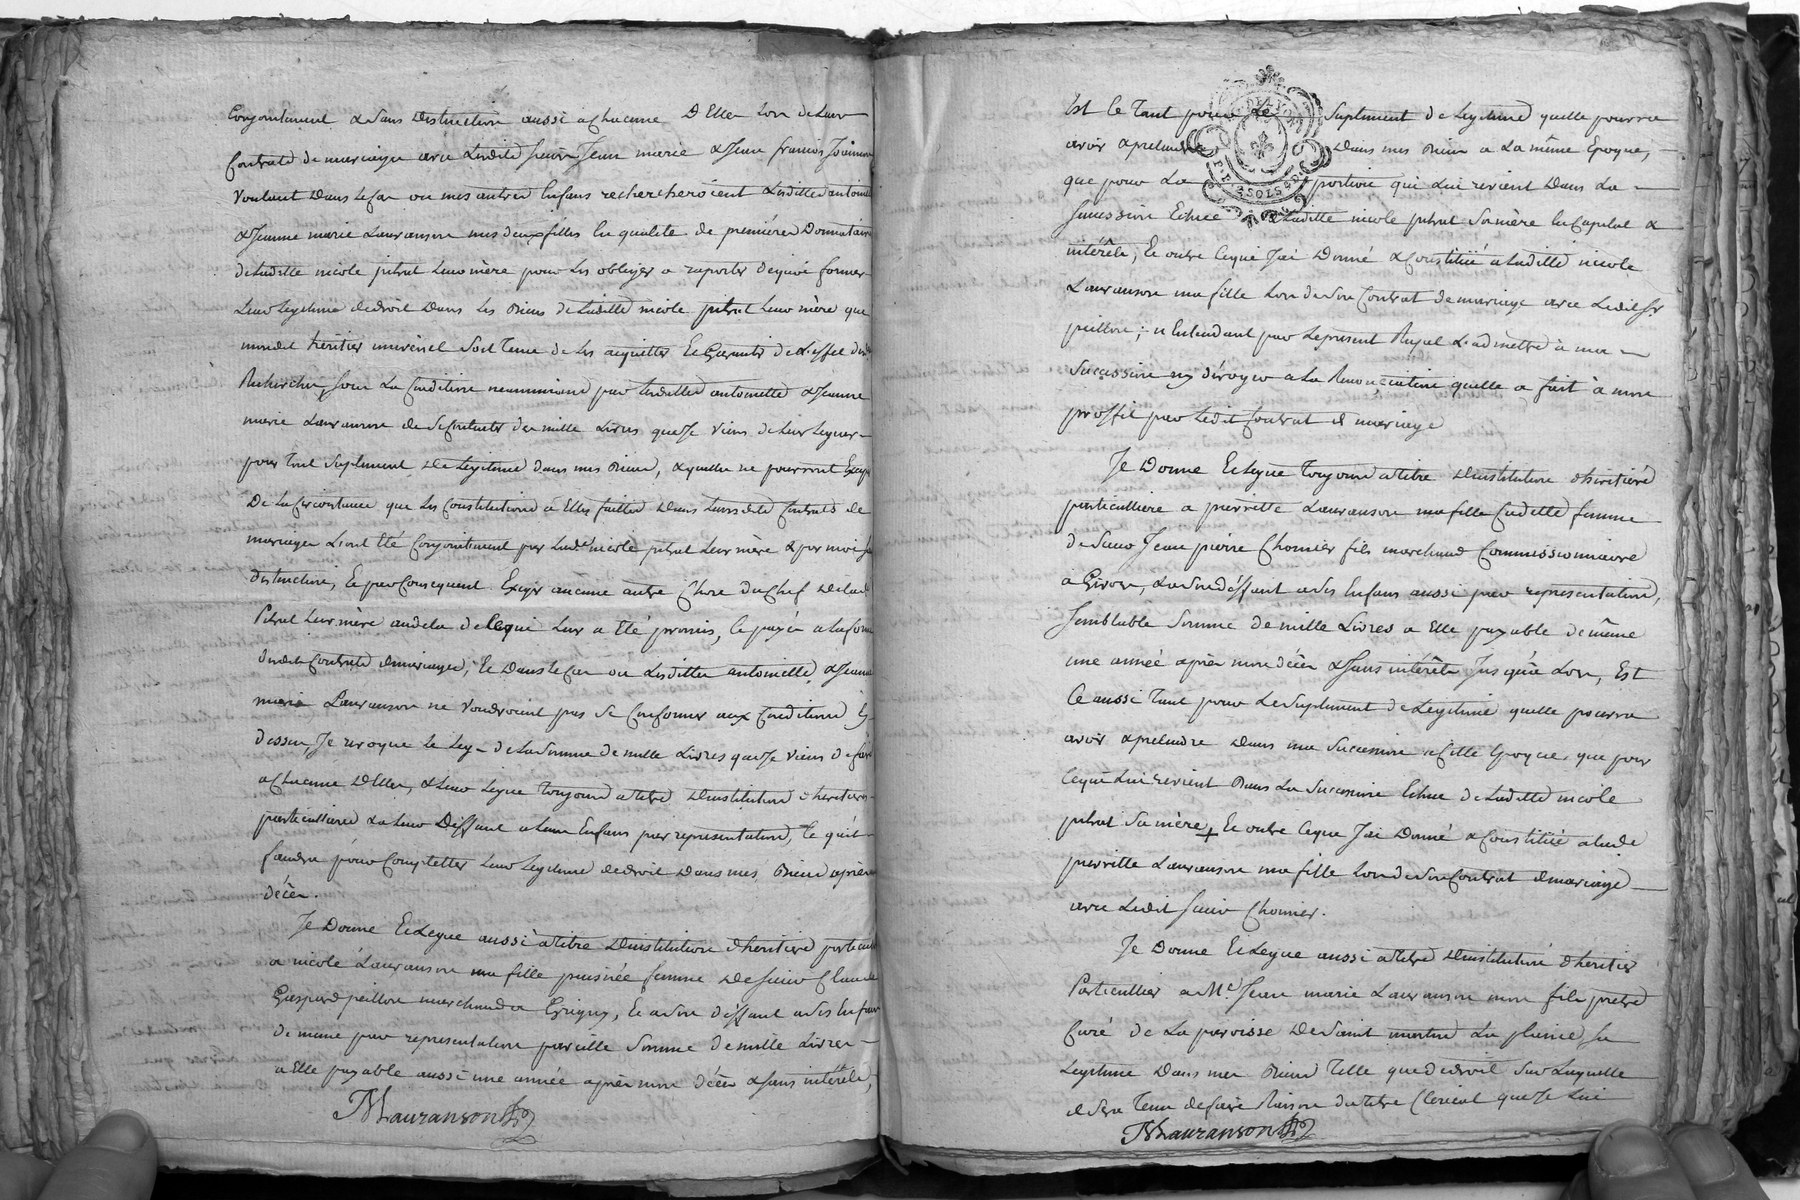 Conjointement & sans distinction aussi a chacune d'Elles lors de leurs
Contrats de mariages avec lesdits sieurs Jean marie & Jean francois Joannon
voulant dans le cas ou mes autres Enfans rechercheroient lesdittes antoinette
& Jeanne marie Lauranson mes deux filles En qualité de premieres Donnataires
de laditte nicole pitrat leur mère pour les obliger a raporter dequoi former
leur legitime de droit Dans les Biens de laditte nicole pitrat leur mère que
mondit héritier universel soit Tenu de les aquitter Et Garantir de l'effet desd.
Recherches, sous la Condition neanmoins que lesdittes antoinette & Jeanne
marie Lauranson se Contentent des mille Livres que Je viens de leur leguer
pour tout suplement de legitime dans mes Biens, & quelles ne pourront Exciper
De la circonstance que les Constitutions a Elles faittes Dans leursdits Contrats de
mariages l'ont Eté Conjointement par lad.e nicole pitrat leur mère & par moi sans
distinction, Et par Consequent Exiger aucune autre Chose du Chef de lad.
Pitrat leur mère au dela de ce qui leur a Eté promis, Et payé a la forme
desdits Contrats de mariages, Et Dans le Cas ou lesdittes antoinette & Jeanne
marie Lauranson ne voudroient pas se Conformer aux Conditions Cy
dessus, Je revoque le legs de la somme de mille Livres que Je viens de faire
a chacune d'Elles, & leur legue toujours a titre d'institution d'heritieres
particulieres & a leur Deffaut a leurs Enfans par representation, Ce qu'il
faudra pour Completter leur legitime de droit dans mes Biens après mon
décès.
Je Donne Et Legue aussi a titre d'institution d'heritiere particuliere
a nicole Lauranson ma fille puisnée femme de sieur Claude
Gaspard peillon marchand a Grigny, Et a son deffaut a ses Enfans
de meme par representation pareille somme de mille Livres
a Elle payable aussi une année après mon décès & sans intérêts,
JMLauranson
Est le Tant pour le Supliment de Legitime quelle pourra
avoir a pretendre Dans mes Biens a la même Epoque,
que pour La portion qui lui revient Dans La
succession Echue de laditte nicole pitrat sa mère En Capital &
intérêts, Et outre Ceque J'ai Donné & Constitüé a laditte nicole
Lauranson ma fille lors de son Contrat de mariage avec ledit sr
peillon; n'Entendant par le present Rapel L'admettre à ma
succession ny déroger a la Renonciation quelle a fait à mon
proffit par ledit Contrat de mariage
Je Donne Et Legue toujours a titre d'institution d'heritière
particulliere a pierrette Lauranson ma fille Cadette femme
de sieur Jean pierre Chomier fils marchand Commissionnaire
à Givors, & a son deffaut a ses Enfans aussi par representation,
semblable somme de mille Livres a Elle payable de même
une année après mon décès & sans intérêts Jusqu'a Lors, Est
Ce aussi Tant pour le supliment de Legitime quelle pourra
avoir a pretendre dans ma succession a cette Epoque, que pour
Cequi Lui revient Dans La succession Echue de laditte nicole
pitrat sa mère, Et outre Ceque J'ai Donné & Constitüé a lad.e
pierrette Lauranson ma fille lors de son Contrat de mariage
avec ledit sieur Chomier.
Je Donne Et Legue aussi a titre d'institution d'heritier
Particullier a Mr. Jean marie Lauranson mon fils pretre
Curé de La paroisse de saint martin La plaine, sa
Legitime Dans mes Biens Telle que de droit sur Laquelle
il sera Tenu de faire Raison du titre Clerical que Je Lui
JMLauranson